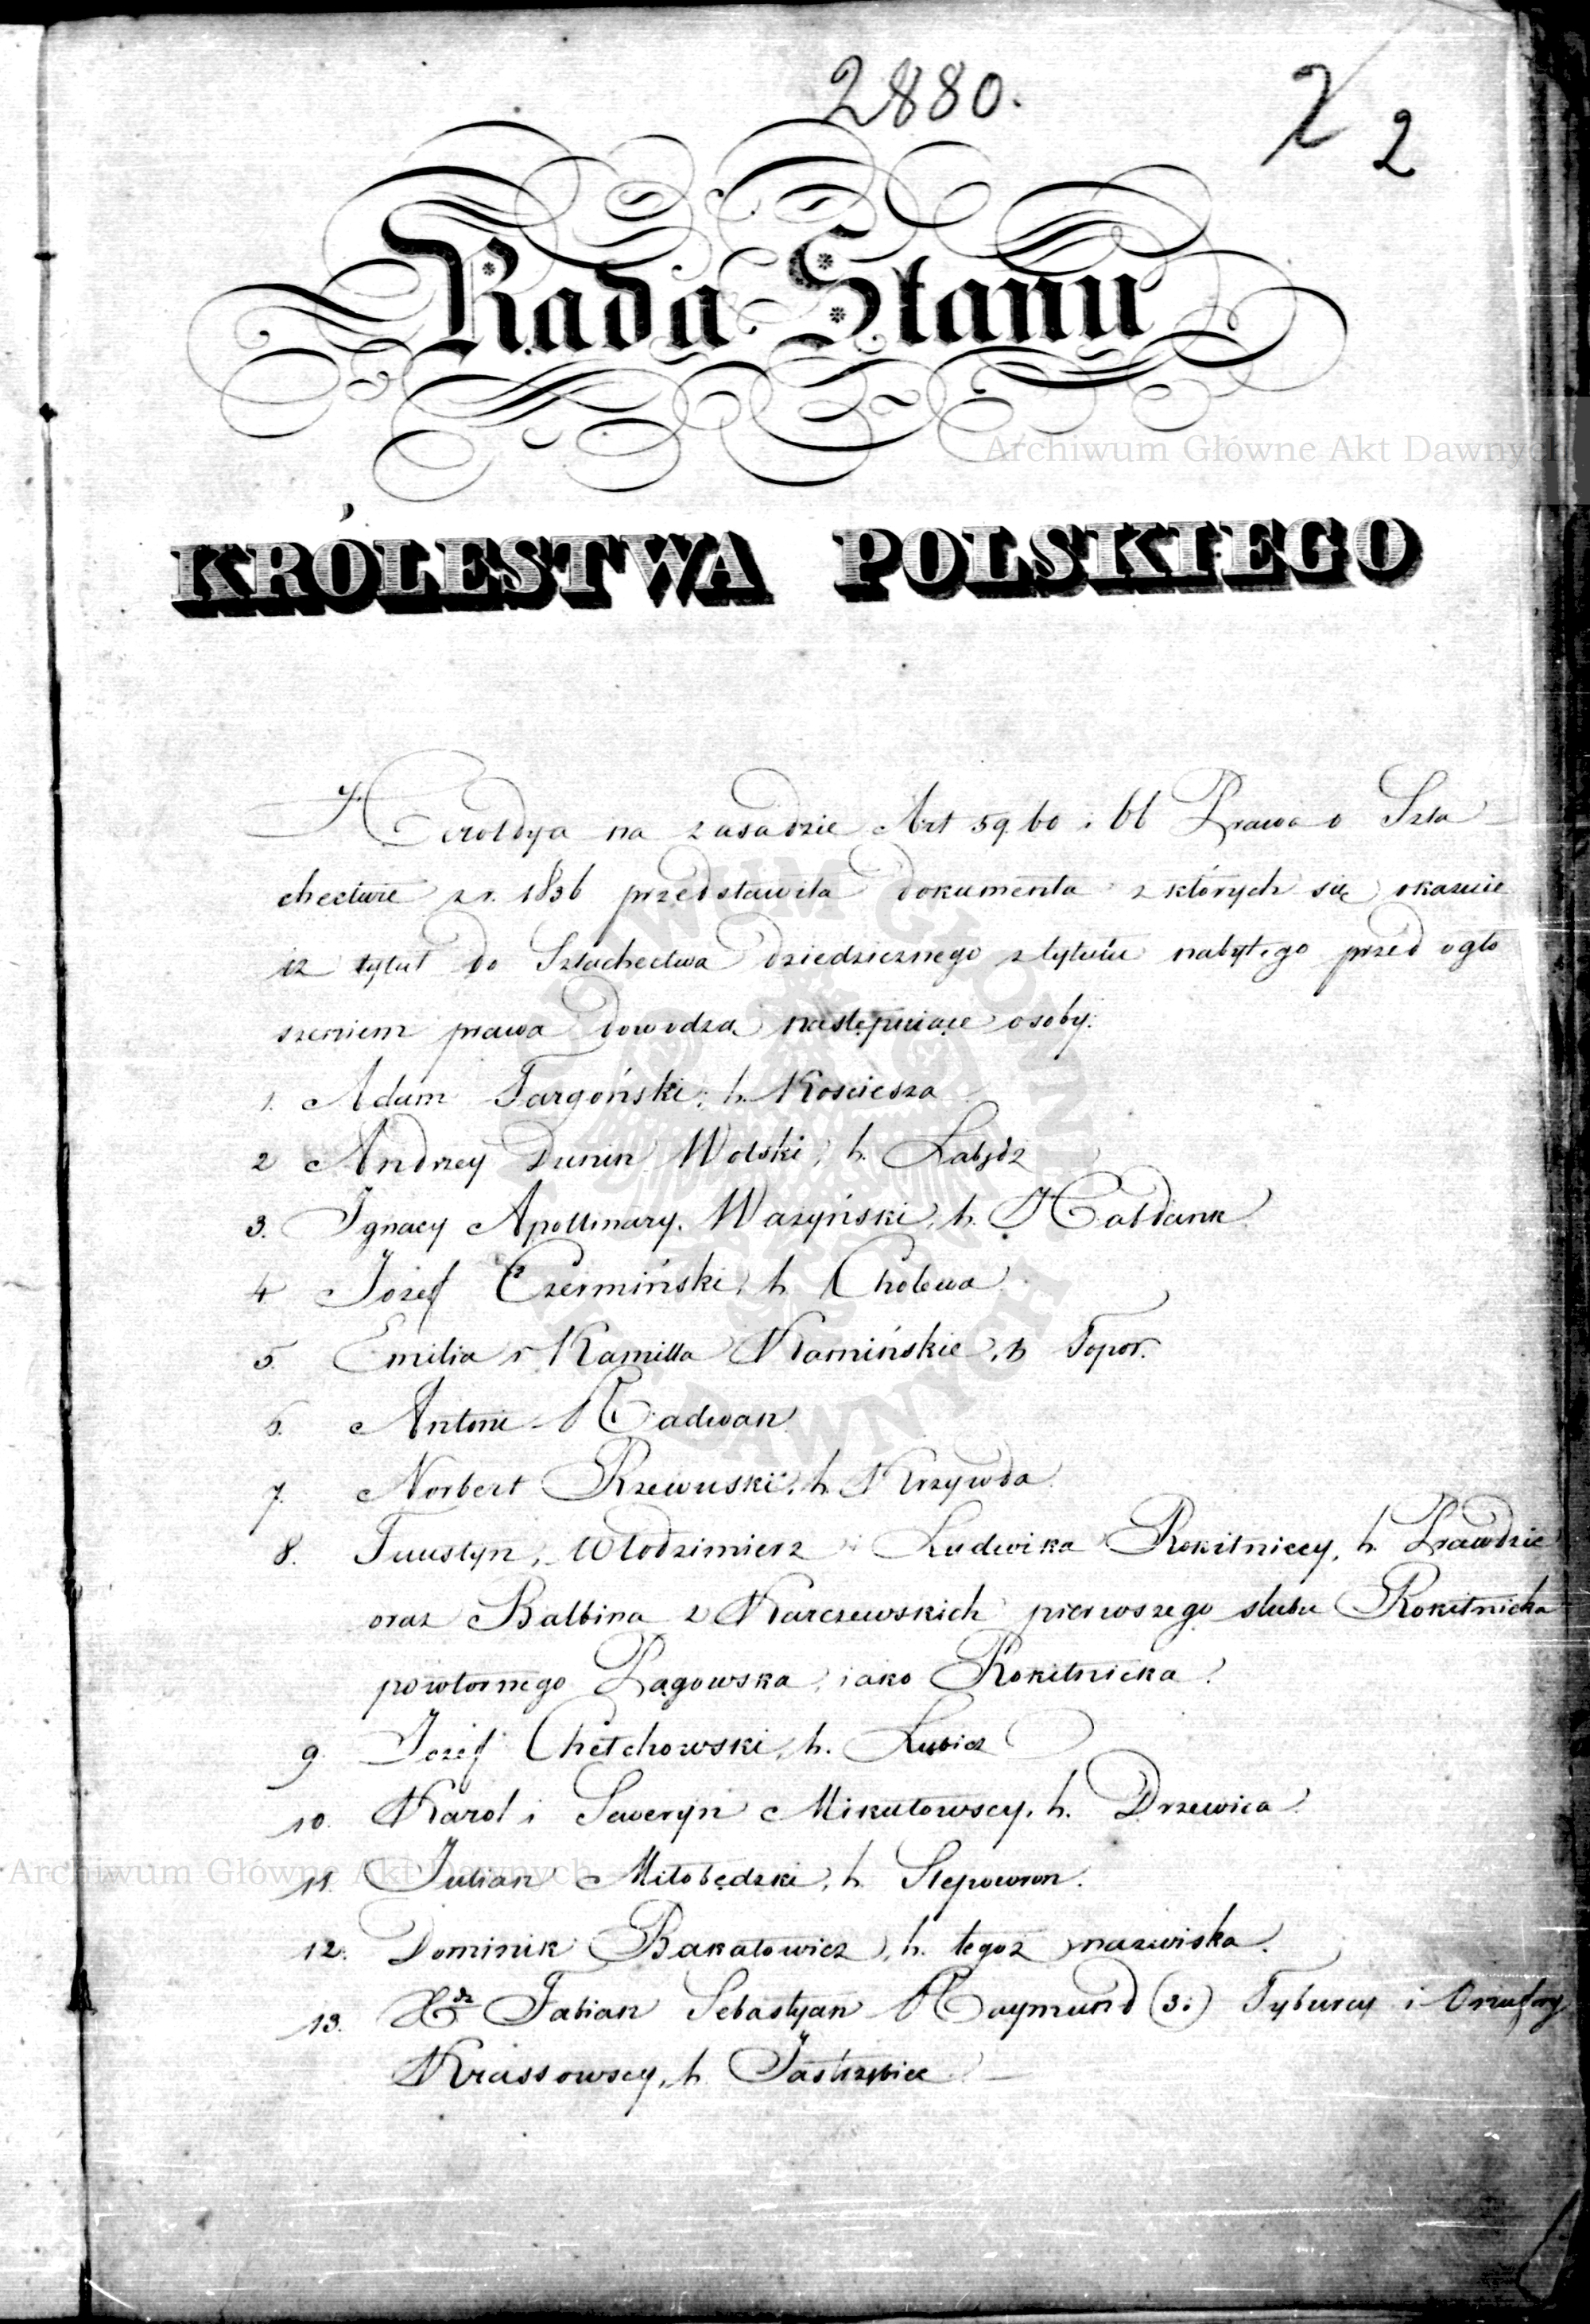 2880.
2 2
Rada Stanu
Archiwum Główne Akt Dawnych
KRÓLESTWA POLSKIEGO
Heroldya na zasadzie Art 59 60 i 61 Prawa o Szla
chectwie z r. 1836 przedstawiła dokumenta z których się okazuie
iż tytuł do Szlachectwa dziedzicznego z tytułu nabytego przed ogło
szeniem prawa dowodzą następuiące osoby:
1. Adam Targoński, h. Kościesza
2 Andrzey Dunin Wolski, h. Łabędz
3. Ignacy Apollinary Wazyński, h. Habdank
4 Józef Czermiński, h Cholewa
5. Emilia i Kamilla Kamińskie, h Topor.
6. Antoni Radwan
7. Norbert Rzewuski, h. Krzywda
8. Faustyn, Włodzimierz i Ludwika Rokitniccy, h. Prawdzic
oraz Balbina z Karczewskich pierwszego slubu Rokitnicka
powtornego Łagowska, iako Rokitnicka.
9. Jozef Chełchowski, h. Lubicz
10. Karol i Seweryn Mikułowscy, h. Drzewica.
Archiwum Główne Akt Dawnych
11. Julian Miłobędzki, h. Slepowron.
12. Dominik Bakałowicz, h. tegoz nazwiska.
13. Xdz Fabian Sebastyan Raymund (3i) Tyburcy i Onufry
Krassowscy, h. Jastrzębiec